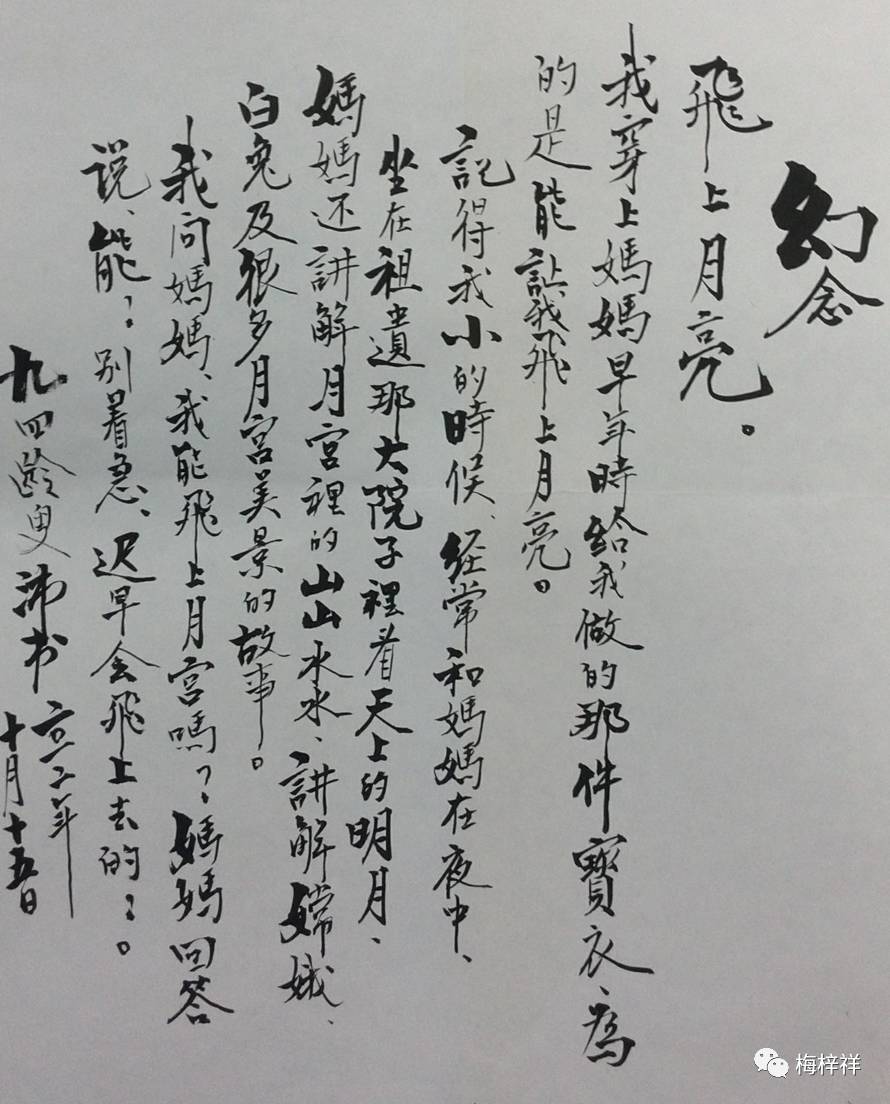 幻念
飛上月亮。
我穿上媽媽早年時給我做的那件寳衣、為
的是能讓我飛上月亮。
記得我小的時候、经常和媽媽在夜中、
坐在祖遺那大院子裡看天上的明月、
媽媽还講解月宫裡的山山水水、講解嫦娥、
白兔及很多月宫美景的故事。
我问媽媽、我能飛上月宫嗎？媽媽回答
说、能、別着急、迟早会飛上去的。
九四齡叟沛书
十月十五日
梅梓祥